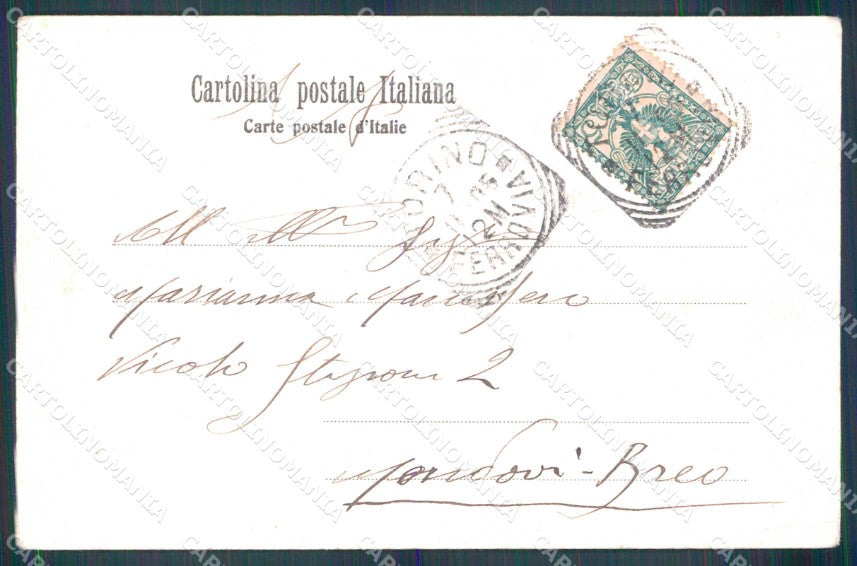 Cartolina postale Italiana
Carte postale d'Italie
TORINO
FERROVIA
2M
All Ill.ma Sig.
Marianna
Vicolo Stazione 2
Mondovì-Breo
CARTOLINOMANIA